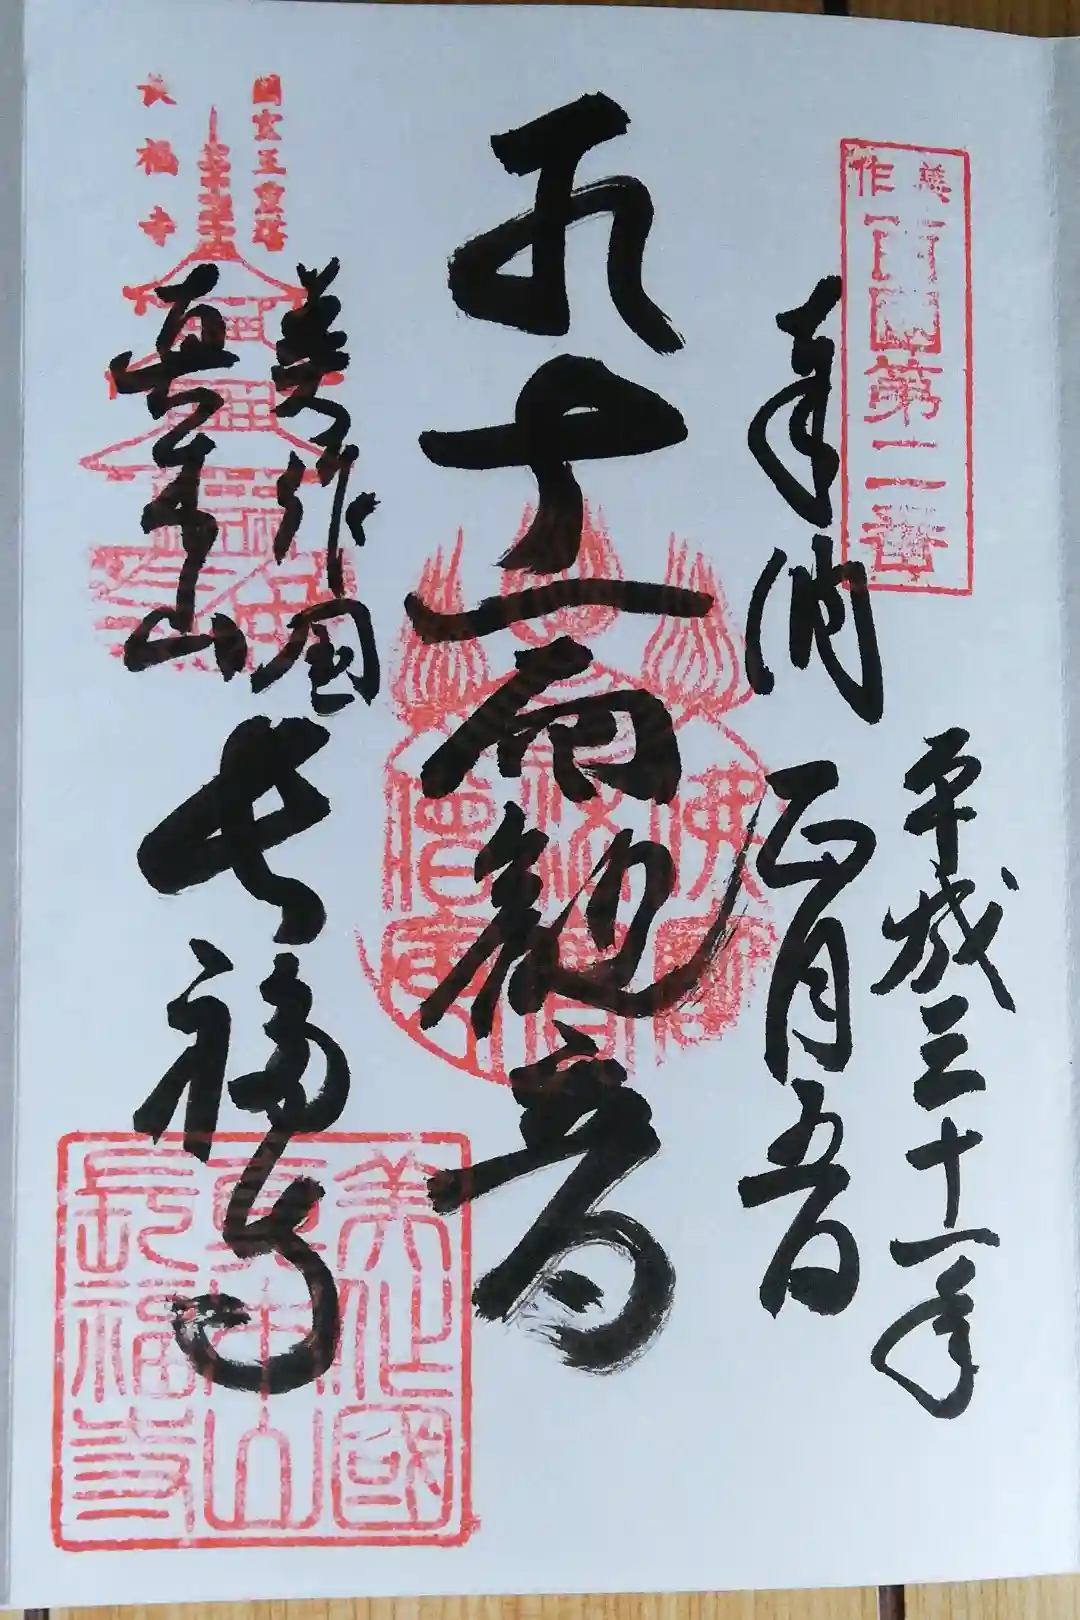 美作
第二番
奉納
平成三十一年
正月五日
十一面観音
佛法僧
國宝三重塔
長福寺
美作国
真木山
長福寺
美作國
真木山
長福寺